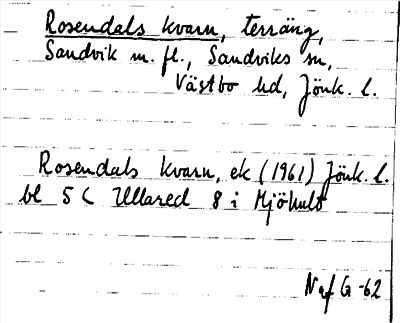 Rosendals kvarn, terräng,
Sandvik m. fl., Sandviks sn,
Västbo hd, Jönk. l.
Rosendals kvarn, ek (1961) Jönk. l.
bl 5 C Ullared 8 i Mjöhult
Naf G -62